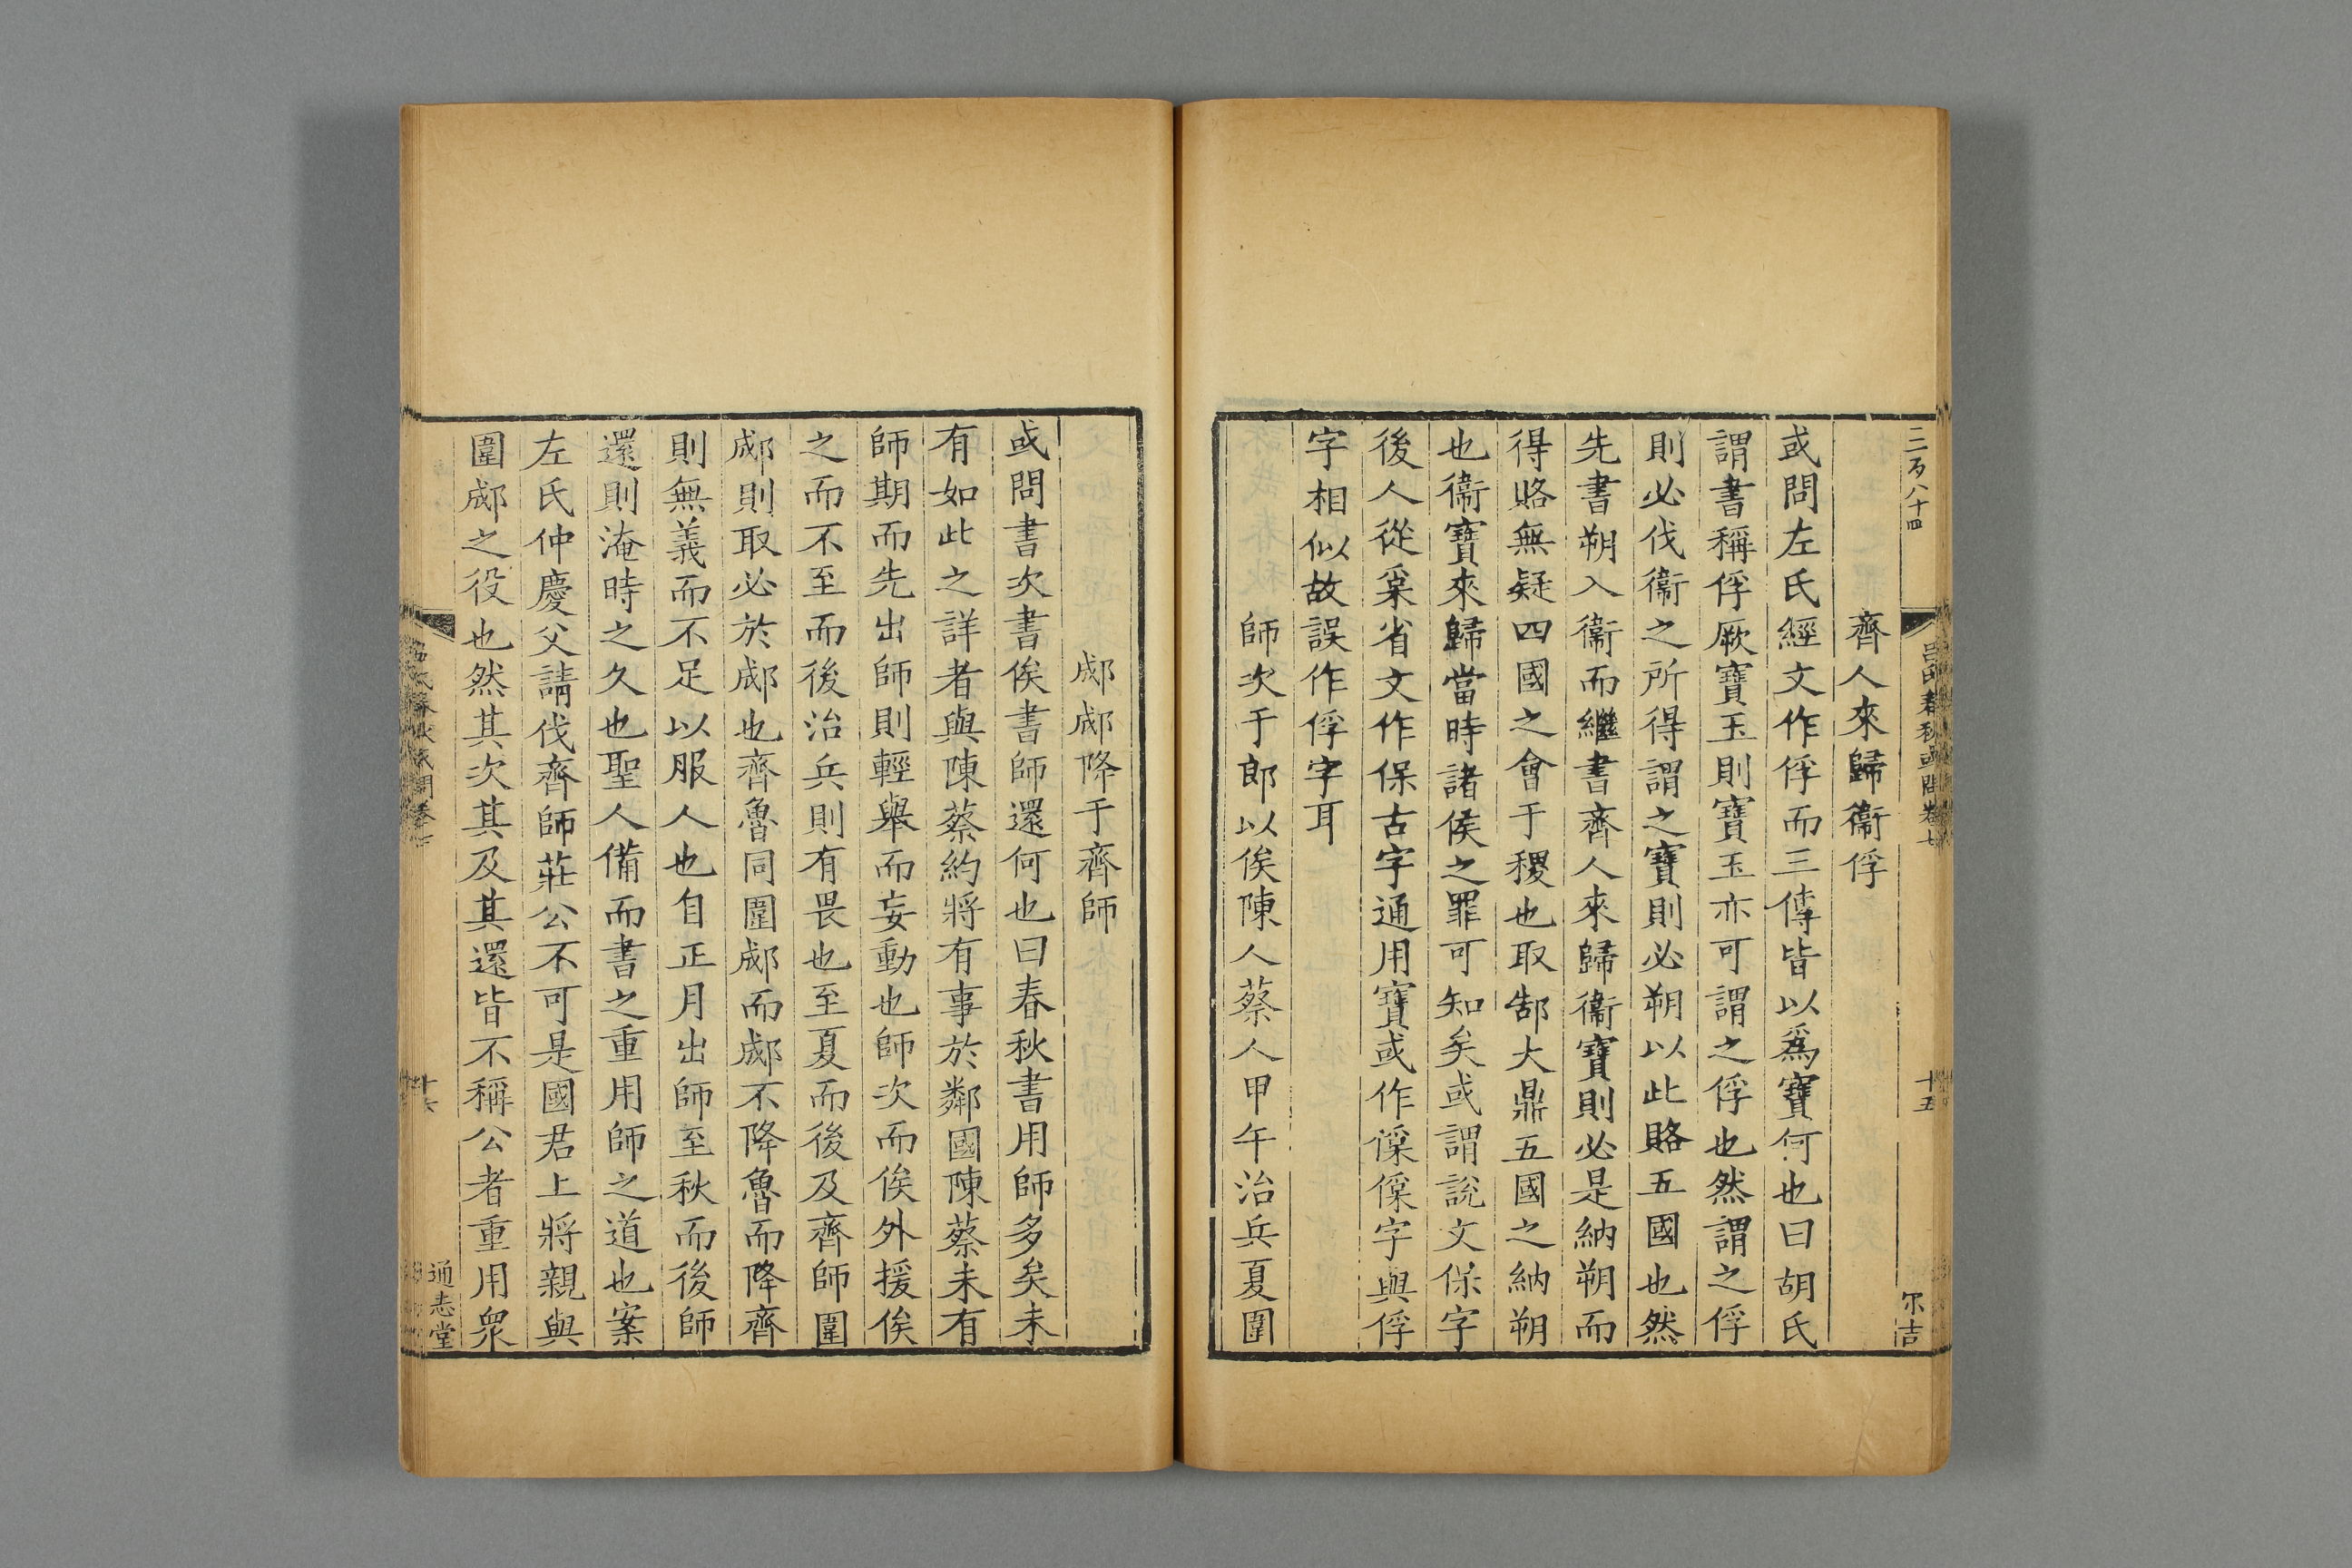 三百八十四
呂氏春秋或問卷七
十五
尔吉
齊人來歸衞俘
或問左氏經文作俘而三傳皆以爲寶何也曰胡氏
謂書稱俘厥寶玉則寶玉亦可謂之俘也然謂之俘
則必伐衞之所得謂之寶則必朔以此賂五國也然
先書朔入衞而繼書齊人來歸衞寶則必是納朔而
得賂無疑四國之會于稷也取郜大鼎五國之納朔
也衞寶來歸當時諸侯之罪可知矣或謂說文保字
後人從𤓽省文作保古字通用寶或作𠈃𠈃字與俘
字相似故誤作俘字耳
師次于郎以俟陳人蔡人甲午治兵夏圍
郕郕降于齊師
或問書次書俟書師還何也曰春秋書用師多矣未
有如此之詳者與陳蔡約將有事於鄰國陳蔡未有
師期而先出師則輕舉而妄動也師次而俟外援俟
之而不至而後治兵則有畏也至夏而後及齊師圍
郕則取必於郕也齊魯同圍郕而郕不降魯而降齊
則無義而不足以服人也自正月出師至秋而後師
還則淹時之久也聖人備而書之重用師之道也案
左氏仲慶父請伐齊師莊公不可是國君上將親與
圍郕之役也然其次其及其還皆不稱公者重用衆
呂氏春秋或問卷七
十六
通志堂